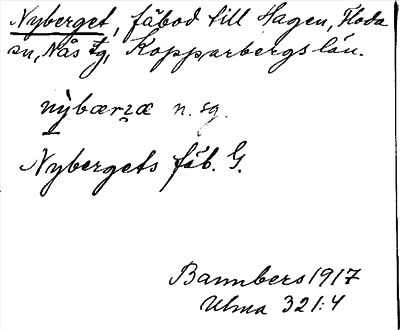 Nyberget, fäbod till Hagen, Floda
sn, Nås tg, Kopparbergs län.
nỳbærʒæ n. sg.
Nybergets fäb. G.
Bannbers 1917
Ulma 321:4